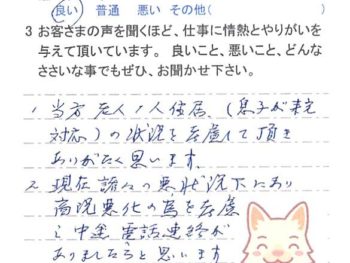 良い 普通 悪い その他(            )
3 お客さまの声を聞くほど、仕事に情熱とやりがいを
与えて頂いています。 良いこと、悪いこと、どんな
ささいな事でもぜひ、お聞かせ下さい。
1 当方 老人1人住居、(息子が来宅
対応)の状況を考慮して頂き
ありがたく思います。
2 現在 諸々の悪状況下にあり
悪化の為を考慮
中途 電話連絡が
ありましたらと思います